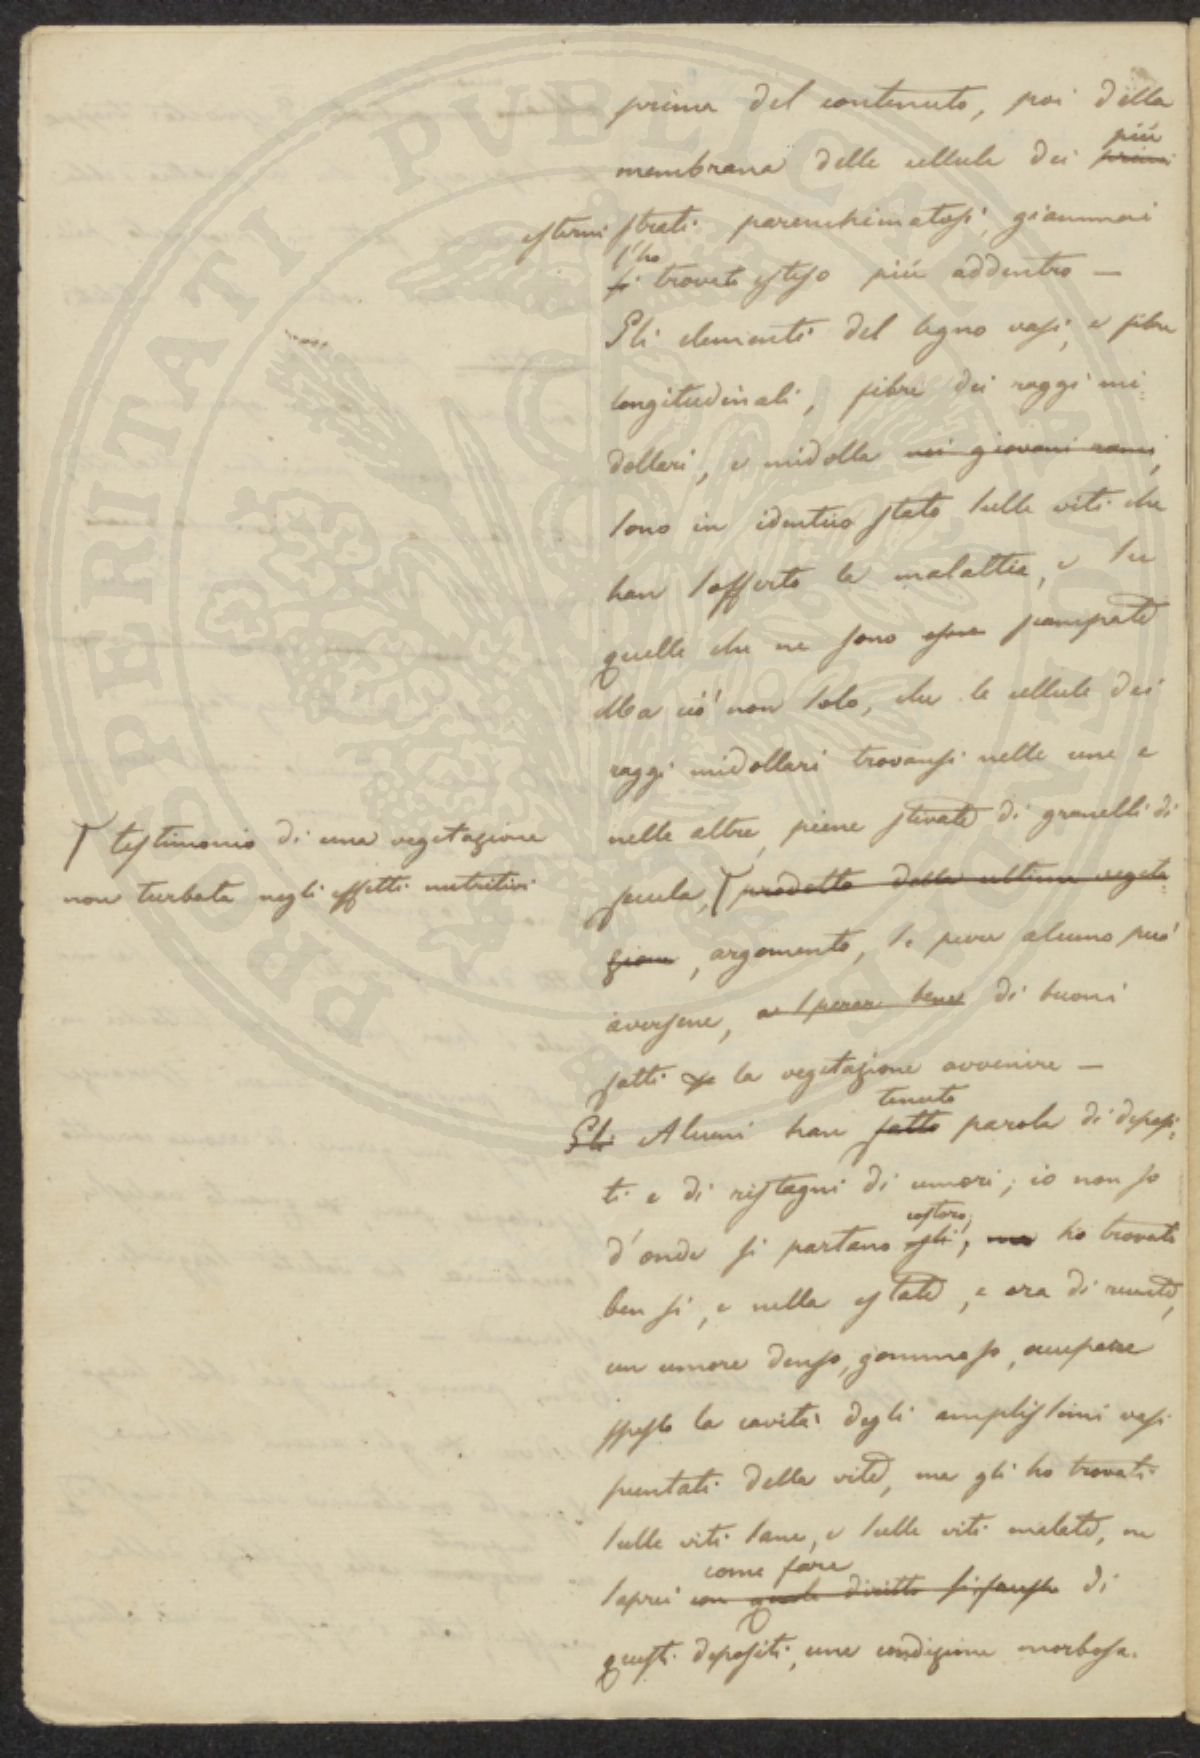 prima del contenuto, poi della
membrana delle cellule dei ~~primi~~ più
esterni strati parenchimatosi, giammai
~~si~~ l'ho trovato esteso più addentro —
Gli elementi del legno vasi, e fibre
longitudinali, fibre dei raggi mi-
dollari, e midolla ~~nei giovani rami~~,
sono in identico stato sulle viti che
han sofferto la malattia, e su
quelle che ne sono scampate
Ma ciò non solo, che le cellule dei
raggi midollari trovansi nelle une e
nelle altre, piene stivate di granelli di
fecula, ~~prodotto della ultima vegeta-~~
~~zione~~, argomento, se pure alcuno può
aversene, ~~a sperar bene~~ di buoni
fatti la vegetazione avvenire —
~~Gli~~ Alcuni han ~~fatto~~ tenuto parola di deposi-
ti e di ristagni di umori; io non so
d'onde si partano ~~egli~~ costoro; ~~ma~~ ho trovato
ben si, e nella estate, e ora di recente,
un umore denso, gommoso, occupare
spesso la cavità degli amplissimi vasi
puntati della vite, ma gli ho trovati
sulle viti sane, e sulle viti malate, ne
saprei ~~con quale diritto si faccia~~ come fare di
questi depositi, una condizione morbosa.
testimonio di una vegetazione
non turbata negli effetti nutritivi
PROSPERITATI PUBLICAE